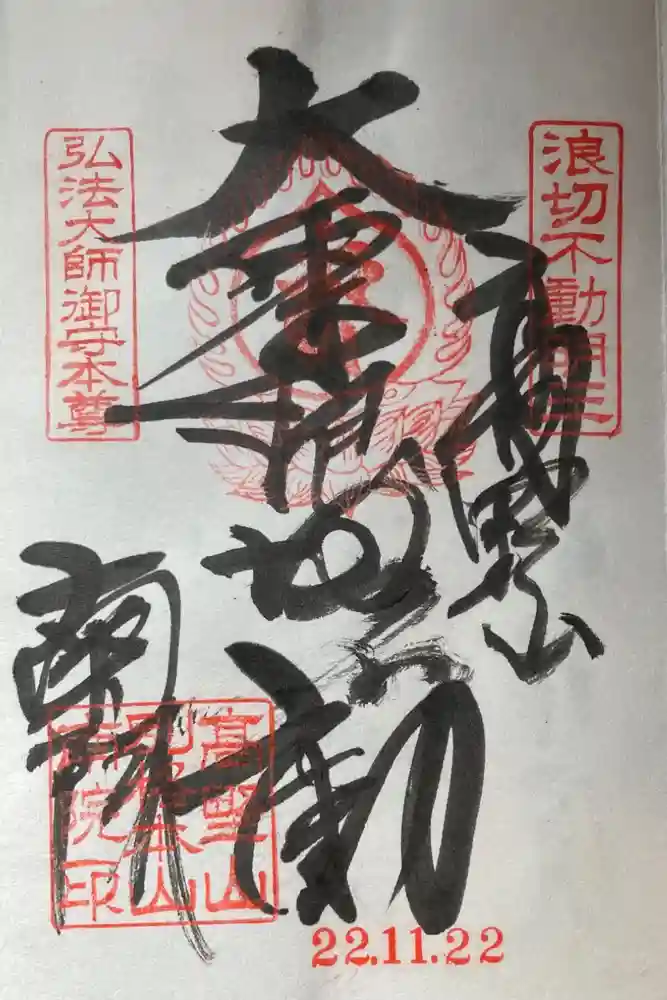 浪切不動明王
高野山
大乗浪切不動
弘法大師御守本尊
南院
高野山
別格本山
南院印
22.11.22